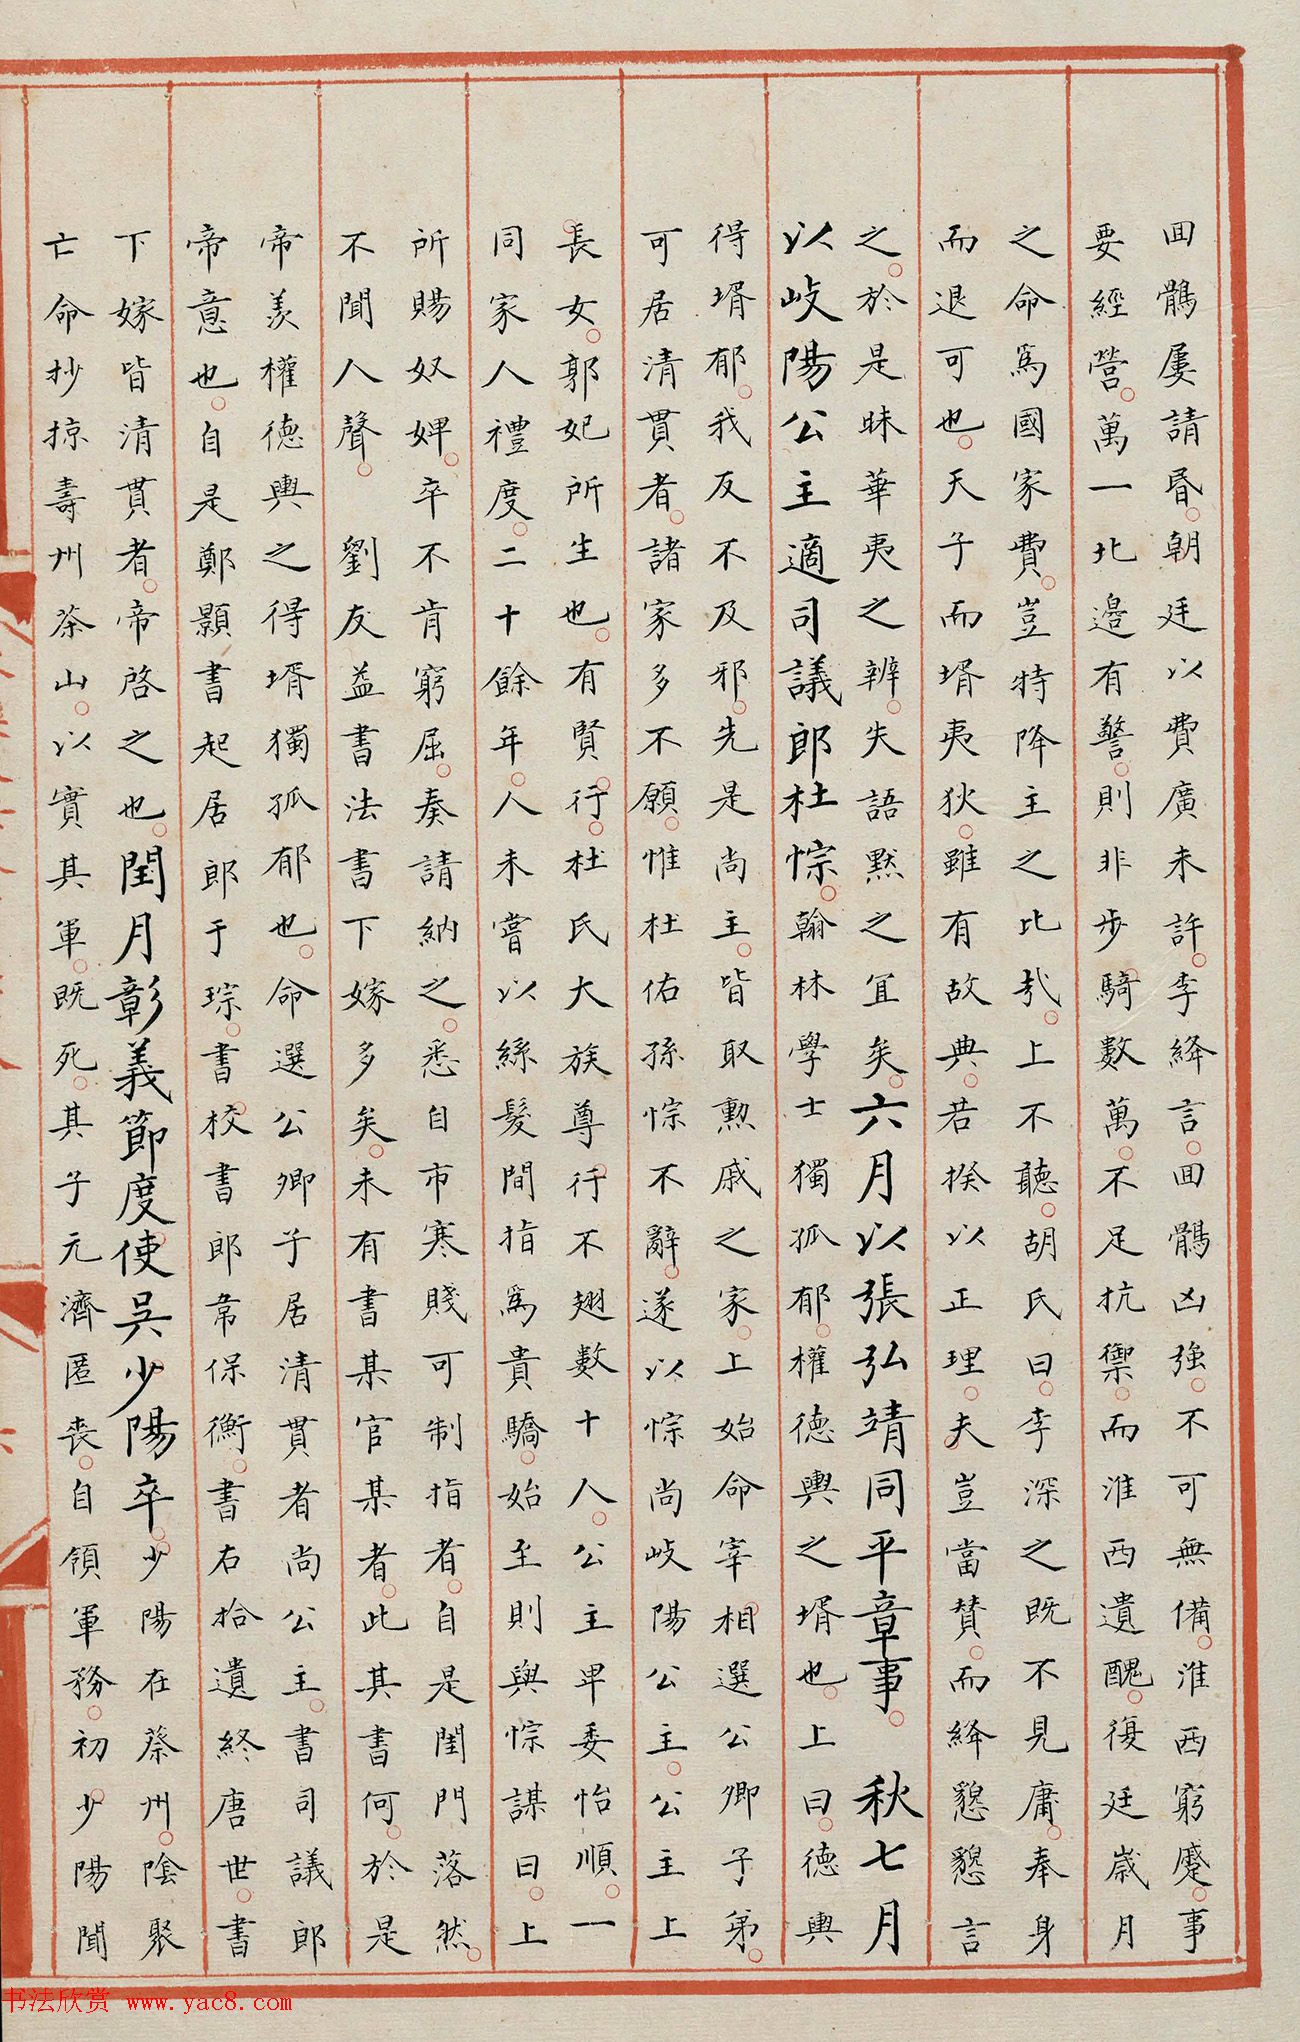 回鶻屢請昏朝廷以費廣未許李絳言回鶻凶強不可無備淮西窮蹙事
要經營萬一北邊有警則非步騎數萬不足抗禦而淮西遺醜復延歲月
之命爲國家費豈特降主之比哉上不聽胡氏曰李深之既不見庸奉身
而退可也天子而壻夷狄雖有故典若揆以正理夫豈當贊而絳懇懇言
之於是昧華夷之辨失語默之宜矣六月以張弘靖同平章事 秋七月
以岐陽公主適司議郎杜悰翰林學士獨孤郁權德輿之壻也上曰德輿
得壻郁我反不及邪先是尚主皆取勲戚之家上始命宰相選公卿子弟
可居清貫者諸家多不願惟杜佑孫悰不辭遂以悰尚岐陽公主公主上
長女郭妃所生也有賢行杜氏大族尊行不翅數十人公主卑委怡順一
同家人禮度二十餘年人未嘗以絲髮間指爲貴驕始至則與悰謀曰上
所賜奴婢卒不肯窮屈奏請納之悉自市寒賤可制指者自是閨門落然
不聞人聲 劉友益書法書下嫁多矣未有書某官某者此其書何於是
帝羨權德輿之得壻獨孤郁也命選公卿子居清貫者尚公主書司議郎
帝意也自是鄭顥書起居郎于琮書校書郎韋保衡書右拾遺終唐世書
下嫁皆清貫者帝啓之也閏月彰義節度使吳少陽卒少陽在蔡州陰聚
亡命抄掠壽州茶山以實其軍既死其子元濟匿喪自領軍務初少陽聞
书法欣赏 www.yac8.com